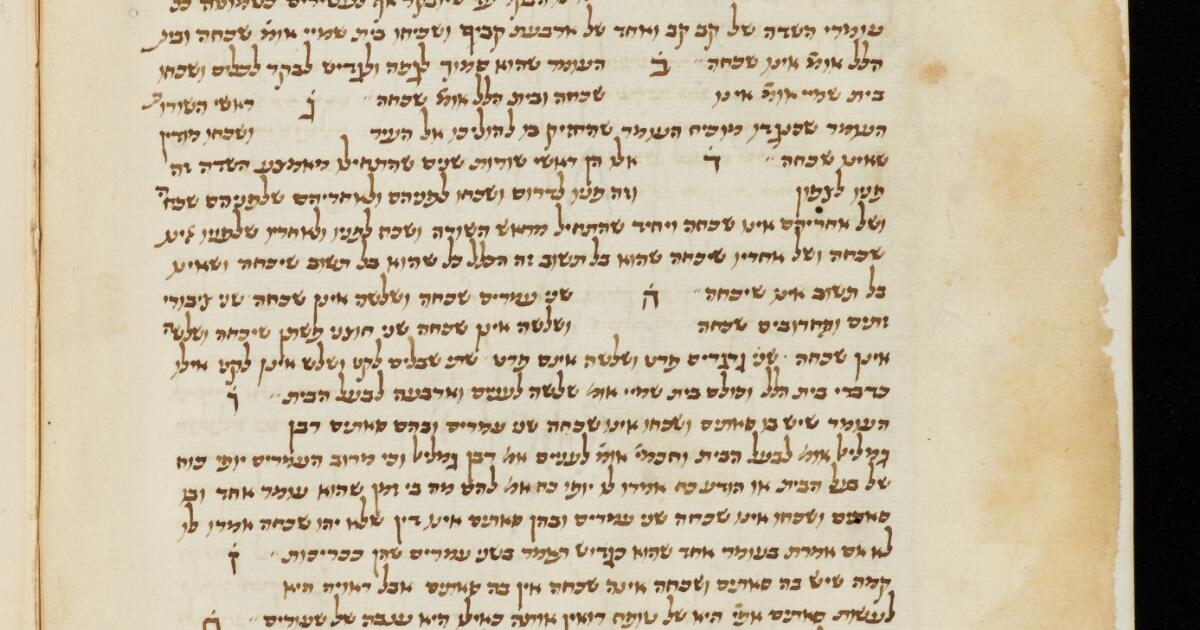 עומרי השדה של קב קב ואחד של ארבעת קבים ושכחו בית שמיי אומ׳ שכחה ובית
הלל אומ׳ אינו שכחה ב העומר שהוא סמוך לגפה ולגדיש לבקר לכלים ושכחו
בית שמיי אומ׳ אינו שכחה ובית הלל אומ׳ שכחה ג ראשי השורו׳
העומר שכנגדו מוכיח העומר שהחזיק בו להוליכו אל העיר ושכחו מודין
שאינו שכחה ד אלו הן ראשי שורות שנים שהתחילו מאמצע השדה זה
פניו לצפון וזה פניו לדרום ושכחו לפניהם ולאחריהם שלפניהם שכח׳
ושל אחריהם אינו שכחה ויחיד שהתחיל מראש השורה ושכח לפניו ולאחריו שלפניו אינו
שכחה ושל אחריו שיכחה שהוא בל תשוב זה הכלל כל שהוא בל תשוב שיכחה ושאינו
בל תשוב אינו שיכחה ה שני עמרים שכחה ושלשה אינן שכחה שני ציבורי
זתים וחרובים שכחה ושלשה אינן שכחה שני חוצני פשתן שיכחה ושלשה
אינן שכחה שני גרגרים פרט ושלשה אינם פרט שתי שבלים לקט ושלש אינן לקט אילו
כדברי בית הלל וכולם בית שמיי אומ׳ שלשה לעניים וארבעה לבעל הבית ו
העומר שיש בו סאתים ושכחו אינו שכחה שני עמרים ובהם סאתים רבן
גמליאל אומ׳ לבעל הבית וחכמי׳ אומ׳ לעניים אמ׳ רבן גמליאל וכי מרוב העמרים יופי כוח
של בעל הבית או הורע כח אמרו לו יופי כח אמ׳ להם מה בי זמן שהוא עומר אחד ובו
סאתים ושכחו אינו שכחה שני עמרים ובהן סאתים אינו דין שלא יהו שכחה אמרו לו
לא אם אמרת בעומר אחד שהוא כגדיש תאמר בשני עמרים שהן ככריכות ז
קמה שיש בה סאתים ושכחה אינה שכחה אין בה סאתים אבל ראויה היא
לעשות סאתים אפי׳ היא של טופח רואין אותה כאילו היא ענבה של שעורים ח